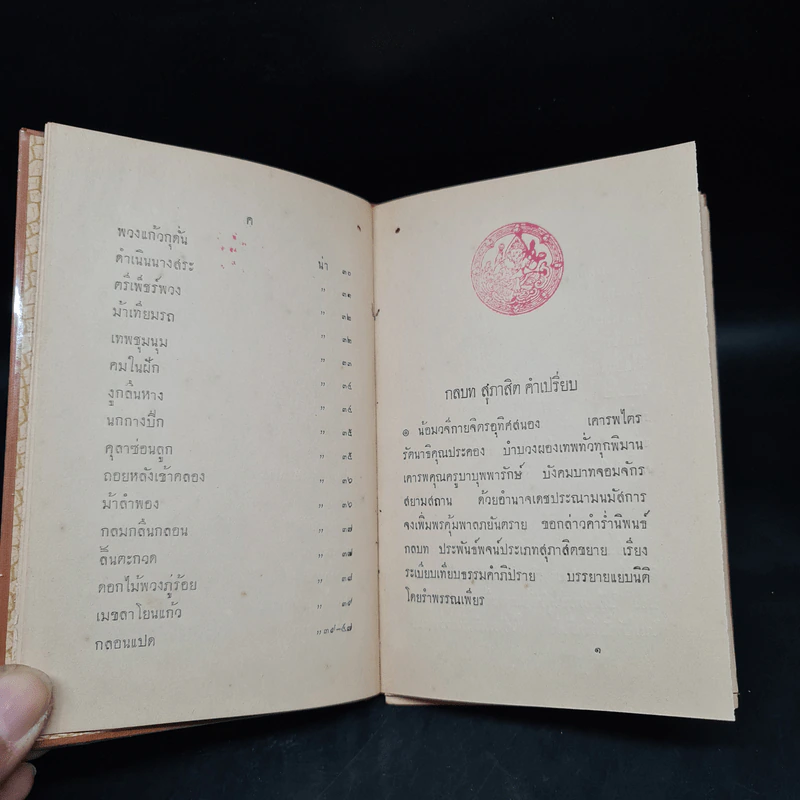 ค
พวงแก้วกุดั่น
ดำเนินนางสระ น่า ๓๐
ตรีเพ็ชร์พวง " ๓๑
ม้าเทียมรถ " ๓๒
เทพชุมนุม " ๓๒
คมในฝัก " ๓๓
งูกลืนหาง " ๓๔
นกกางปีก " ๓๔
คุลาซ่อนลูก " ๓๕
ถอยหลังเข้าคลอง " ๓๕
ม้าลำพอง " ๓๖
กลมกลืนกลอน " ๓๖
สินตะกวด " ๓๗
ดอกไม้พวงภู่ร้อย " ๓๗
เมขลาโยนแก้ว " ๓๘
กลอนแปด " ๓๙
" ๓๙–๔๗
กลบท สุภาสิต คำเปรียบ
๏ น้อมวจีกายจิตรอุทิศสนอง เคารพไตร
รัตนาธิคุณประคอง บำบวงผองเทพทั่วทุกพิมาน
เคารพคุณครูบาบุพพารักษ์ บังคมบาทจอมจักร
สยามสถาน ด้วยอำนาจเดชประณามนมัสการ
จงเพิ่มพรคุ้มพาลภยันตราย ขอกล่าวคำร่ำนิพนธ์
กลบท ประพันธ์พจน์ประเภทสุภาสิตขยาย เรียง
ระเบียบเทียบธรรมคำภิปราย บรรยายแยบนิติ
โดยรำพรรณเพียร
๑